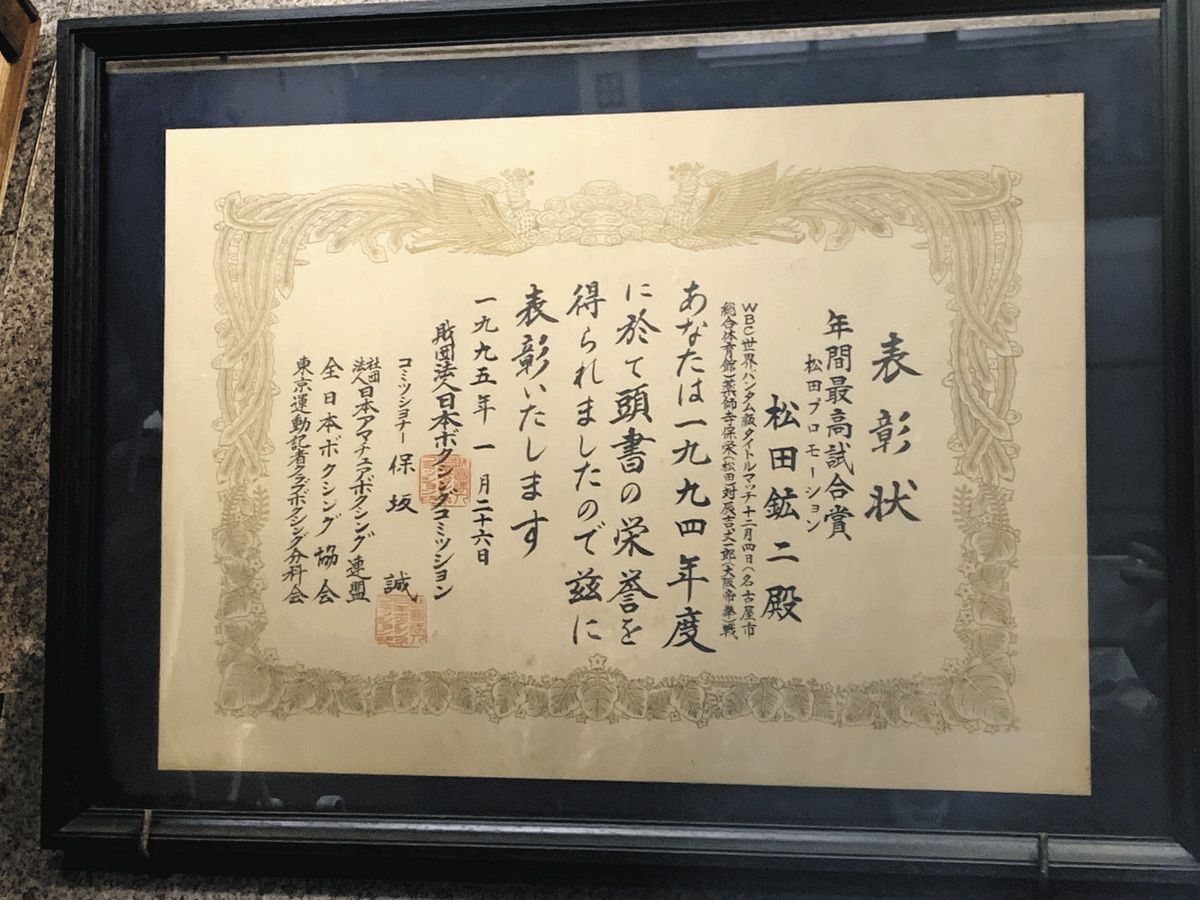 表彰状
年間最高試合賞
松田プロモーション
松田鉱二殿
WBC世界バンタム級タイトルマッチ十二月四日(名古屋市
総合体育館)薬師寺保栄(松田)対辰吉丈一郎(大阪帝拳)戦
あなたは一九九四年度
に於て頭書の栄誉を
得られましたので茲に
表彰いたします
一九九五年一月二十六日
財団法人日本ボクシングコミッション
コミッショナー 保坂 誠
社団法人日本アマチュアボクシング連盟
全日本ボクシング協会
東京運動記者クラブボクシング分科会